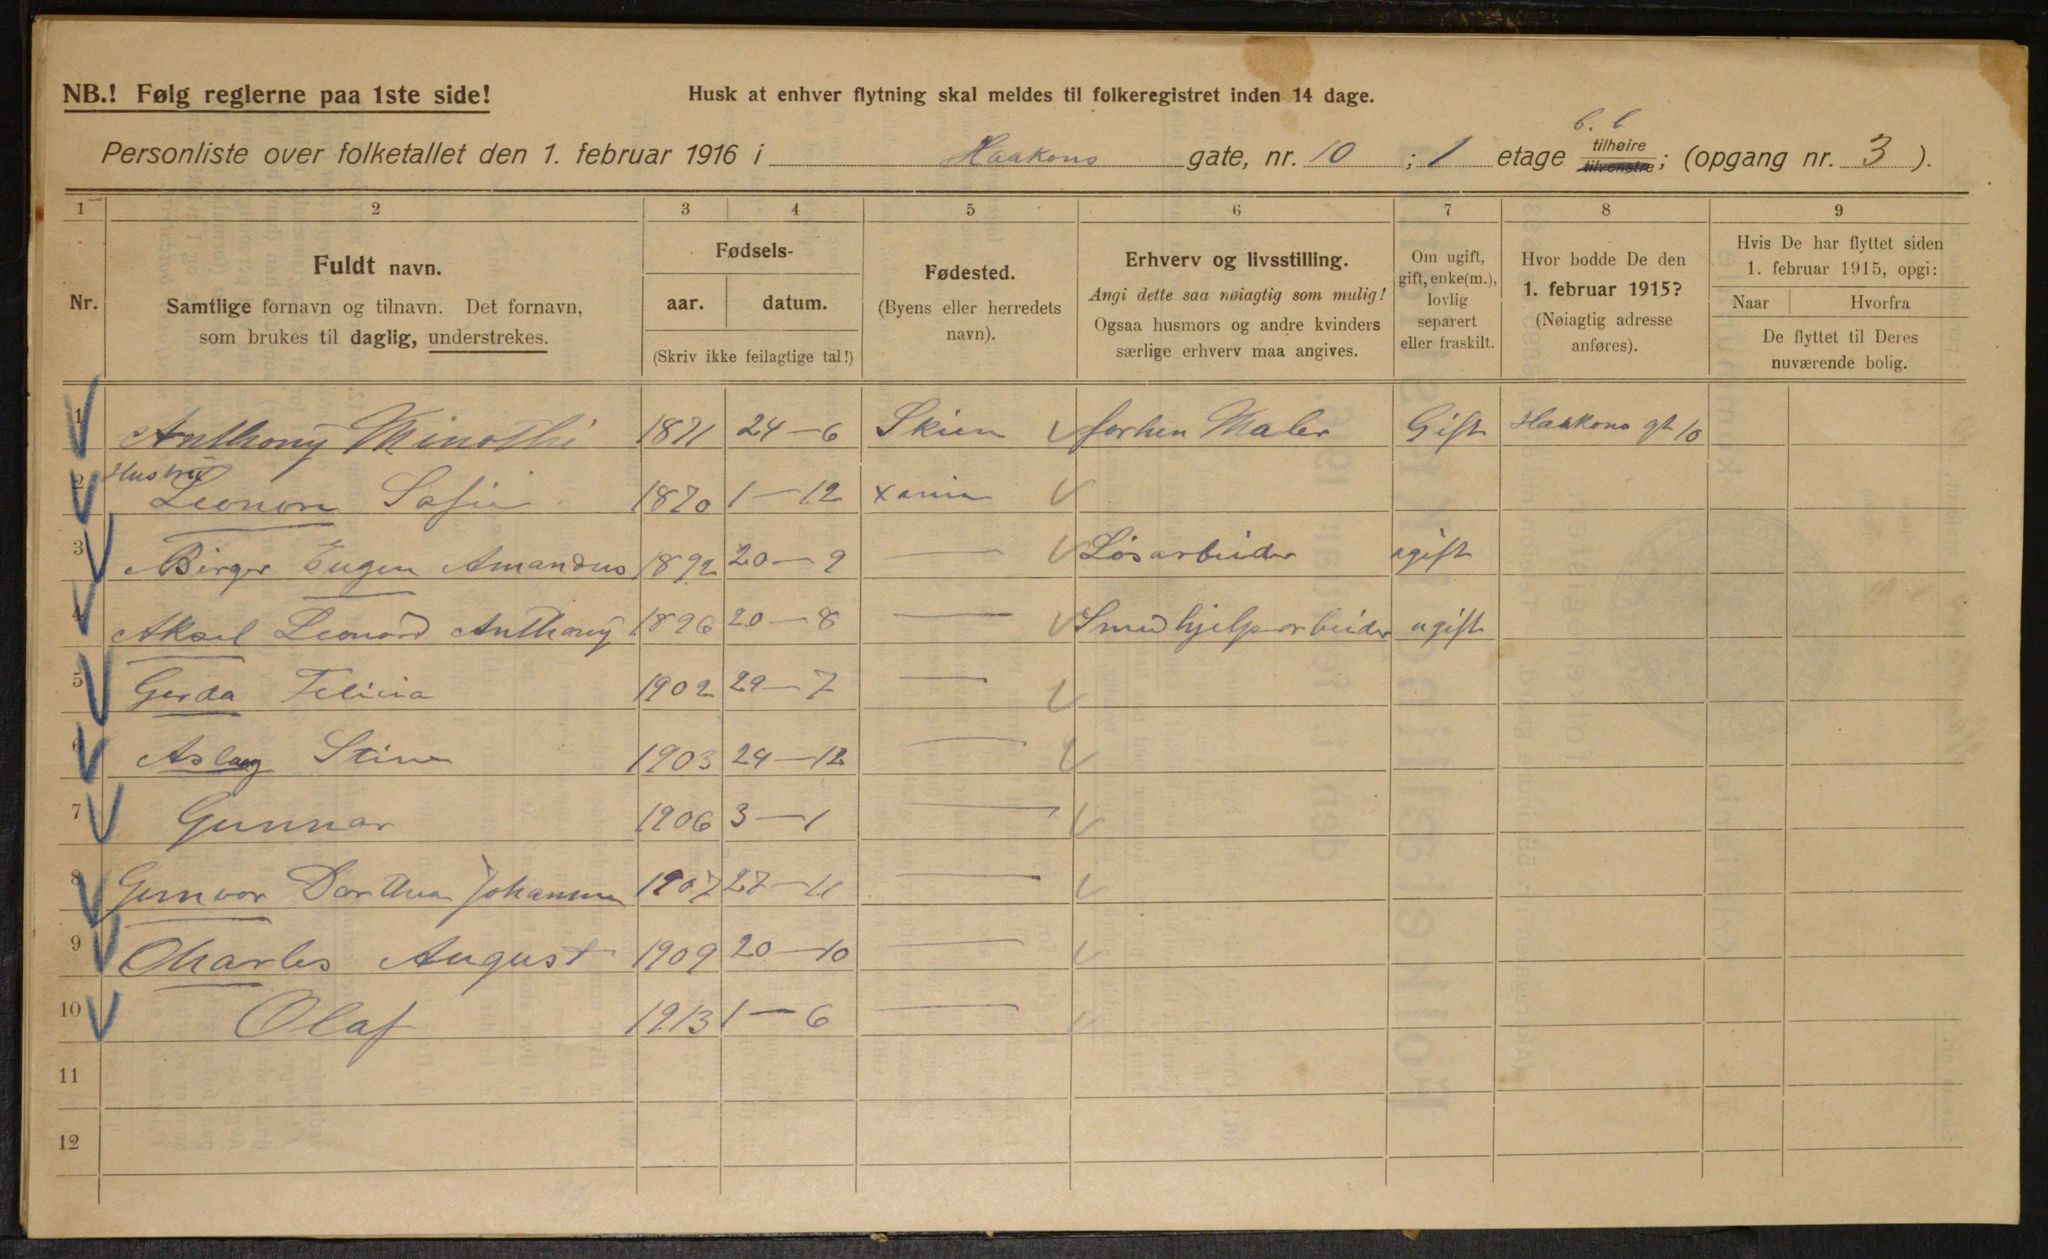 NB.! Følg reglerne paa 1ste side!
Husk at enhver flytning skal meldes til folkeregistret inden 14 dage.
b. b.
Personliste over folketallet den 1. februar 1916 i Haakons gate, nr. 10 ; 1 etage tilhøire tilvenstre; (opgang nr. 3 ).
1 2 3 4 5 6 7 8 9
Nr.
Fuldt navn.
Samtlige fornavn og tilnavn. Det fornavn,
som brukes til daglig, understrekes.
Fødsels-
aar. datum.
(Skriv ikke feilagtige tal!)
Fødested.
(Byens eller herredets
navn).
Erhverv og livsstilling.
Angi dette saa nøiagtig som mulig!
Ogsaa husmors og andre kvinders
særlige erhverv maa angives.
Om ugift,
gift, enke(m.),
lovlig
separert
eller fraskilt.
Hvor bodde De den
1. februar 1915?
(Nøiagtig adresse
anføres).
Hvis De har flyttet siden
1. februar 1915, opgi:
Naar Hvorfra
De flyttet til Deres
nuværende bolig.
1 Anthony Minothi 1871 24-6 Skien forhen Maler Gift Haakons gt 10
Hustru
2 Leonore Sofie 1870 1-12 Xania
3 Birger Eugen Amandus 1892 20-9 — Løsarbeider ugift
4 Aksel Leonard Anthony 1896 20-8 — Smedhjelparbeider ugift
5 Gerda Felicia 1902 29-7 —
6 Aslaug Stine 1903 24-12 —
7 Gunnar 1906 3-1 —
8 Gunvor Dorthea Johanna 1907 27-11 —
9 Charles August 1909 20-10 —
10 Olaf 1913 1-6 —
11
12